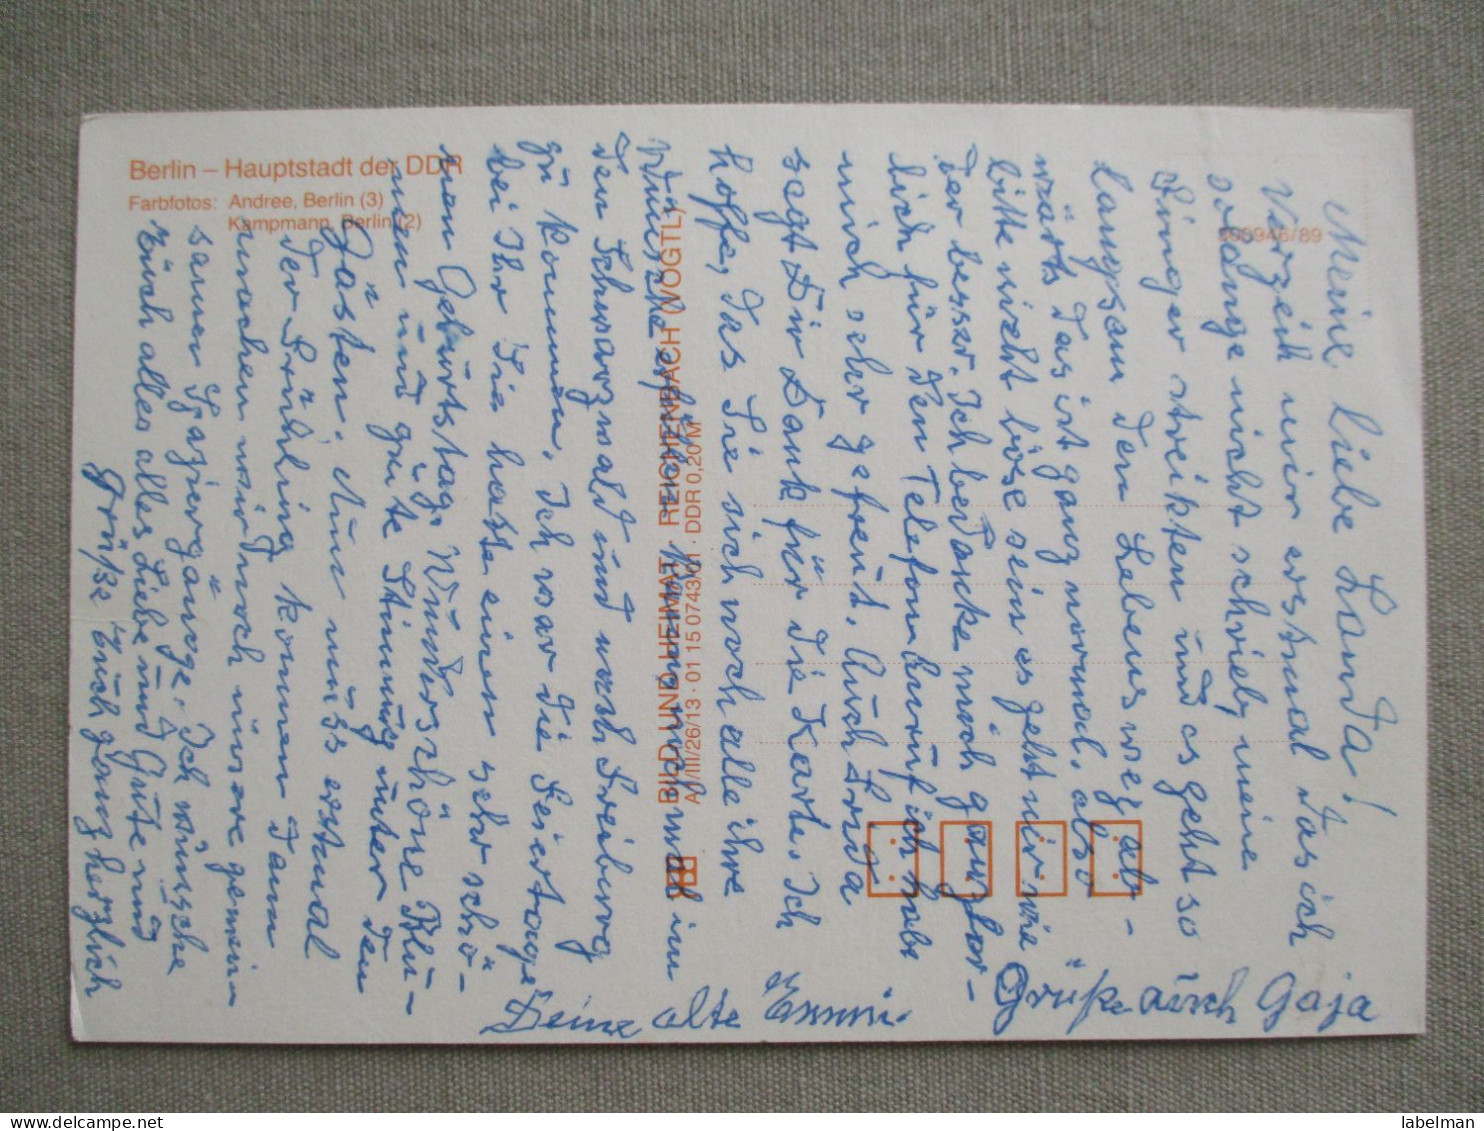 Berlin – Hauptstadt der DDR
Farbfotos: Andree, Berlin (3)
Kampmann, Berlin (2)
BILD UND HEIMAT REICHENBACH (VOGTL)
A1/III/26/13 · 01 15 0743/01 · DDR 0,20 M
300946/89
Meine liebe Landa!
Verzeih mir erstmal das ich
solange nicht schrieb, meine
Finger streikten und es geht so
langsam dem Lebensweg ab-
wärts das ist ganz normal, also
bitte nicht böse sein es geht mir wie
der besser. Ich bedanke mich ganz hor-
lich für den Telefonanruf ich habe
mich sehr gefreut. Auch Frida
sagt Dir Dank für die Karte. Ich
hoffe, das Sie sich noch alle ihre
Wünsche erfüllen kann noch mal in
den Schwarzwald und nach Freiburg
zu kommen. Ich war die Feiertage
bei Ihr Sie hatte einen sehr schö-
nen Geburtstag. Wunderschöne Blu-
men und gute Stimmung unter den
Gästen. Nun muss erstmal
der Frühling kommen dann
machen wir noch unsere gemein-
samen Spaziergänge. Ich wünsche
Euch alles alles Liebe und Gute und
Grüße Euch ganz herzlich
Deine alte Emmi.
Grüße auch Gaja